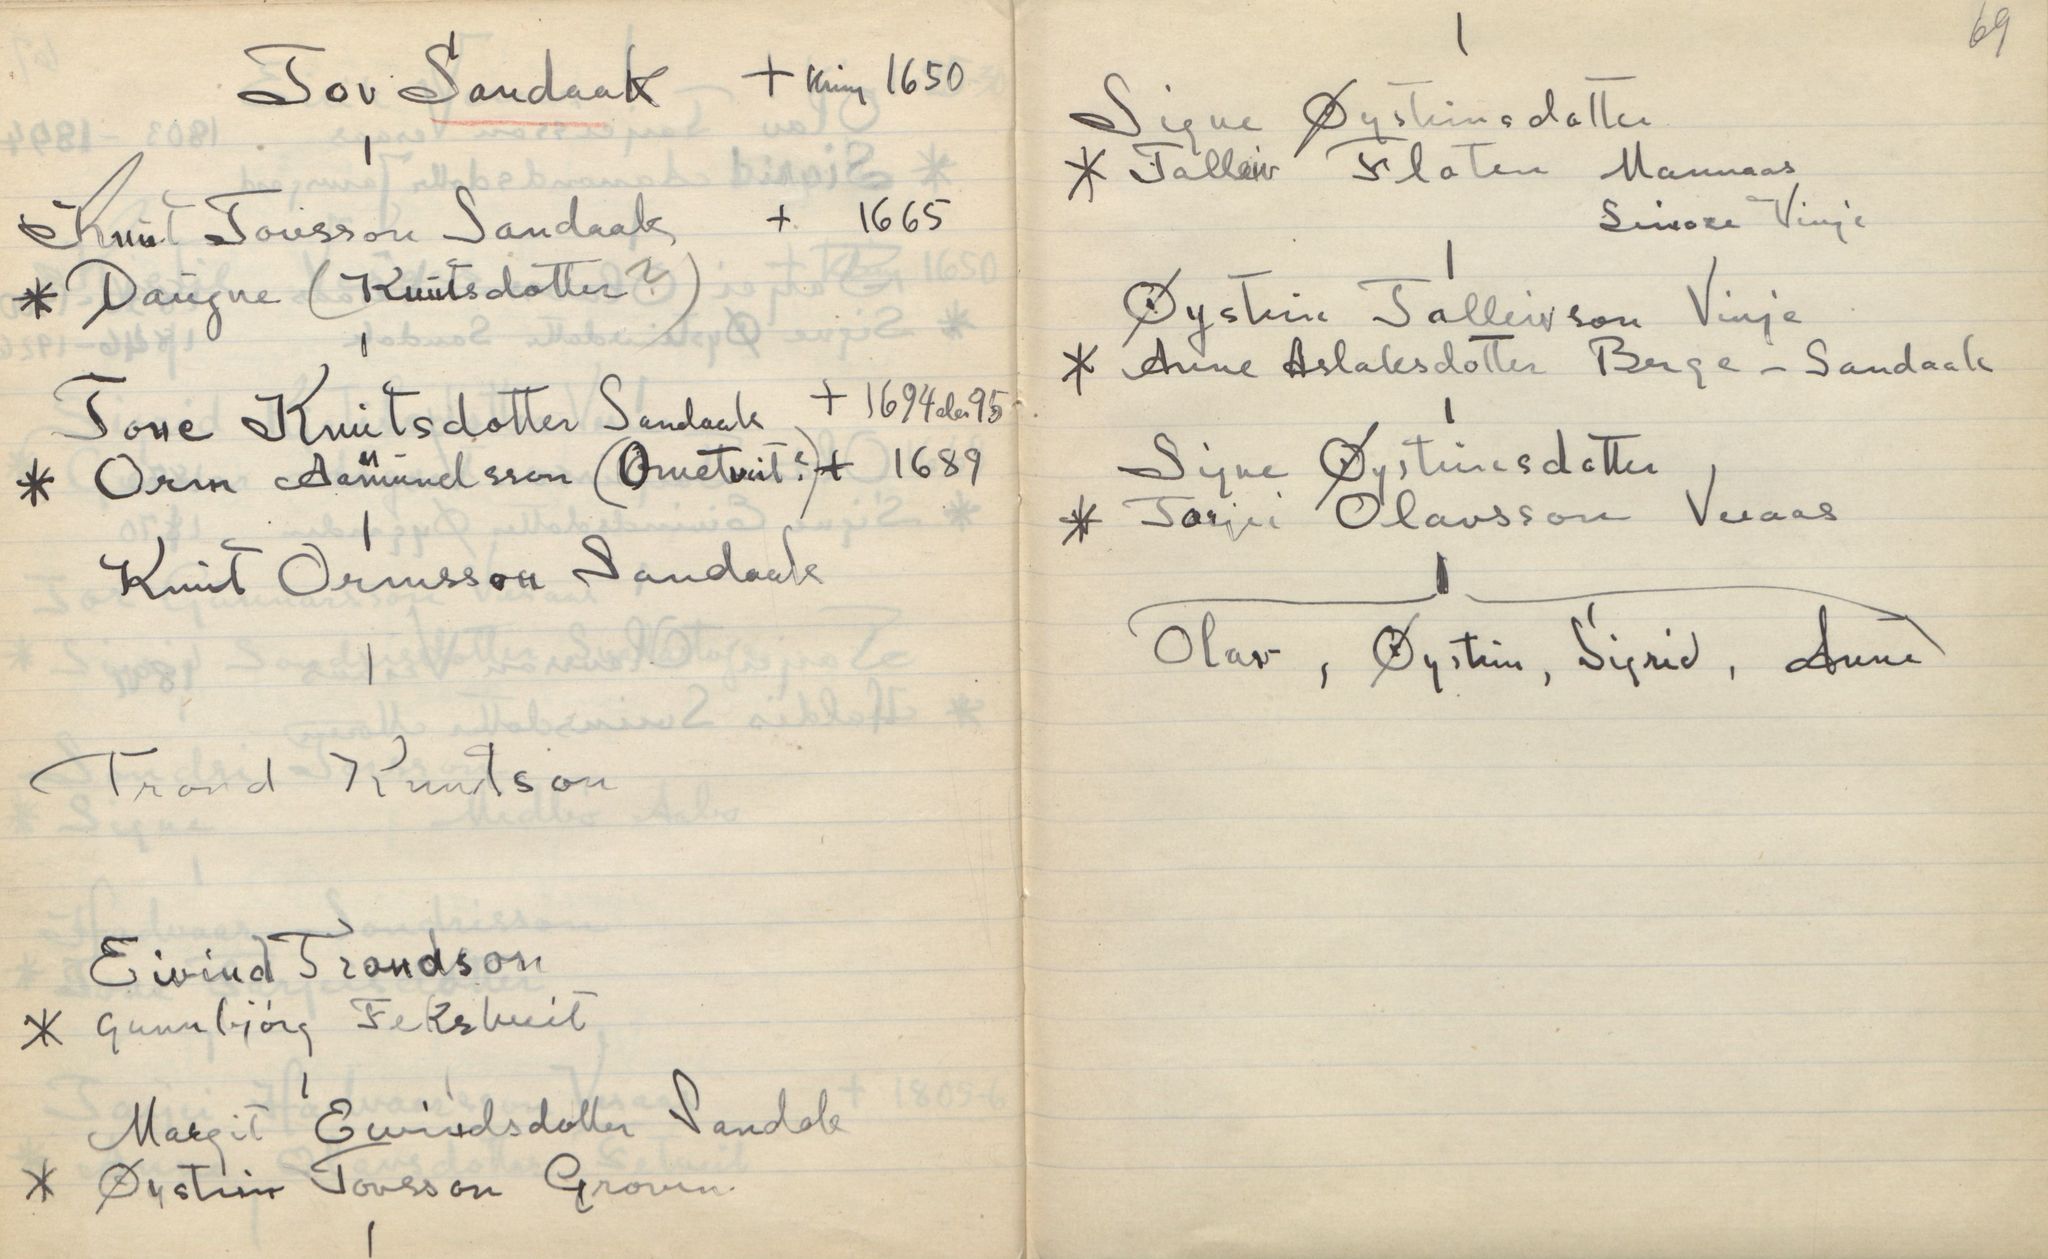 Tov Sandaak + kring 1650
Knut Tovsson Sandaak + 1665
* Daugne (Knutsdotter?)
Tone Knutsdotter Sandaak + 1694 eler 95
* Orm Aamundsson (Ometveit?) + 1689
Knut Ormsson Sandaak
Trond Knutson
Eivind Trondson
* Gunnbjörg Feksteveit
Margit Eivindsdotter Sandok
* Øystein Tovsson Groven
69
Signe Øysteinsdotter
* Talleiv Flaten Mannaas
Seinare Vinje
Øystein Talleivson Vinje
* Anne Aslaksdotter Berge - Sandaak
Signe Øysteinsdotter
* Tarjei Olavsson Vesaas
Olav, Øystein, Sigrid, Anne